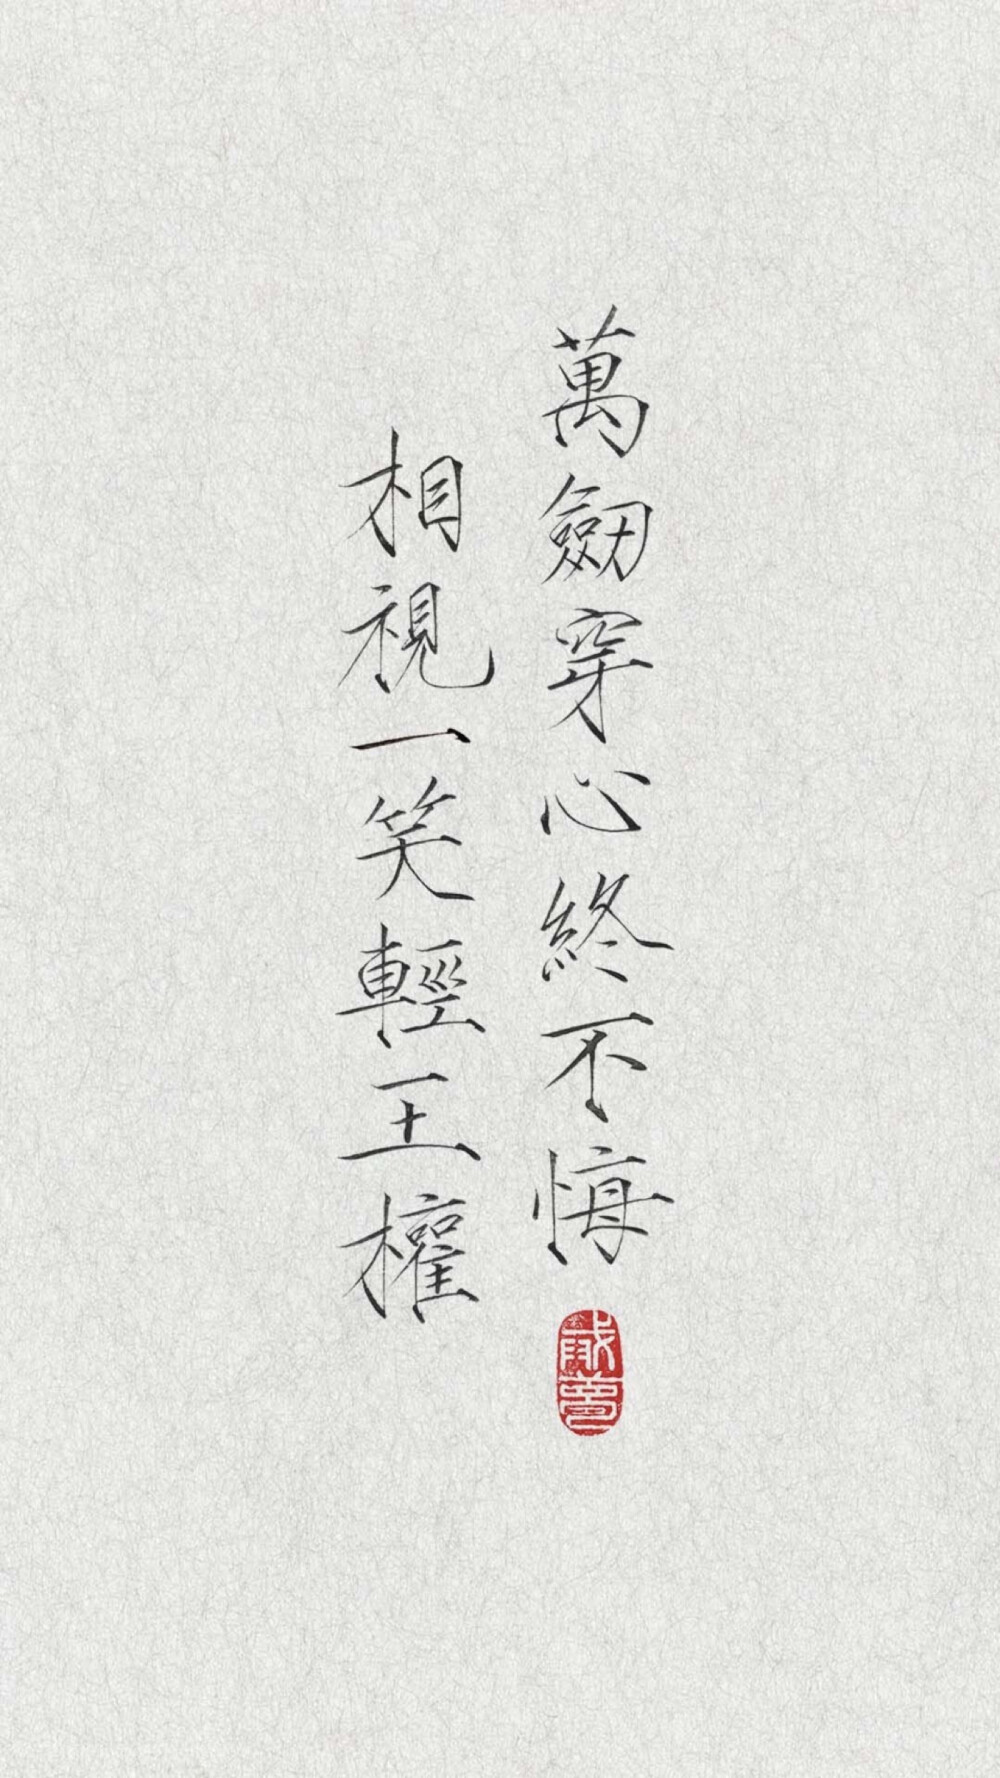 萬劒穿心終不悔
相視一笑輕王權